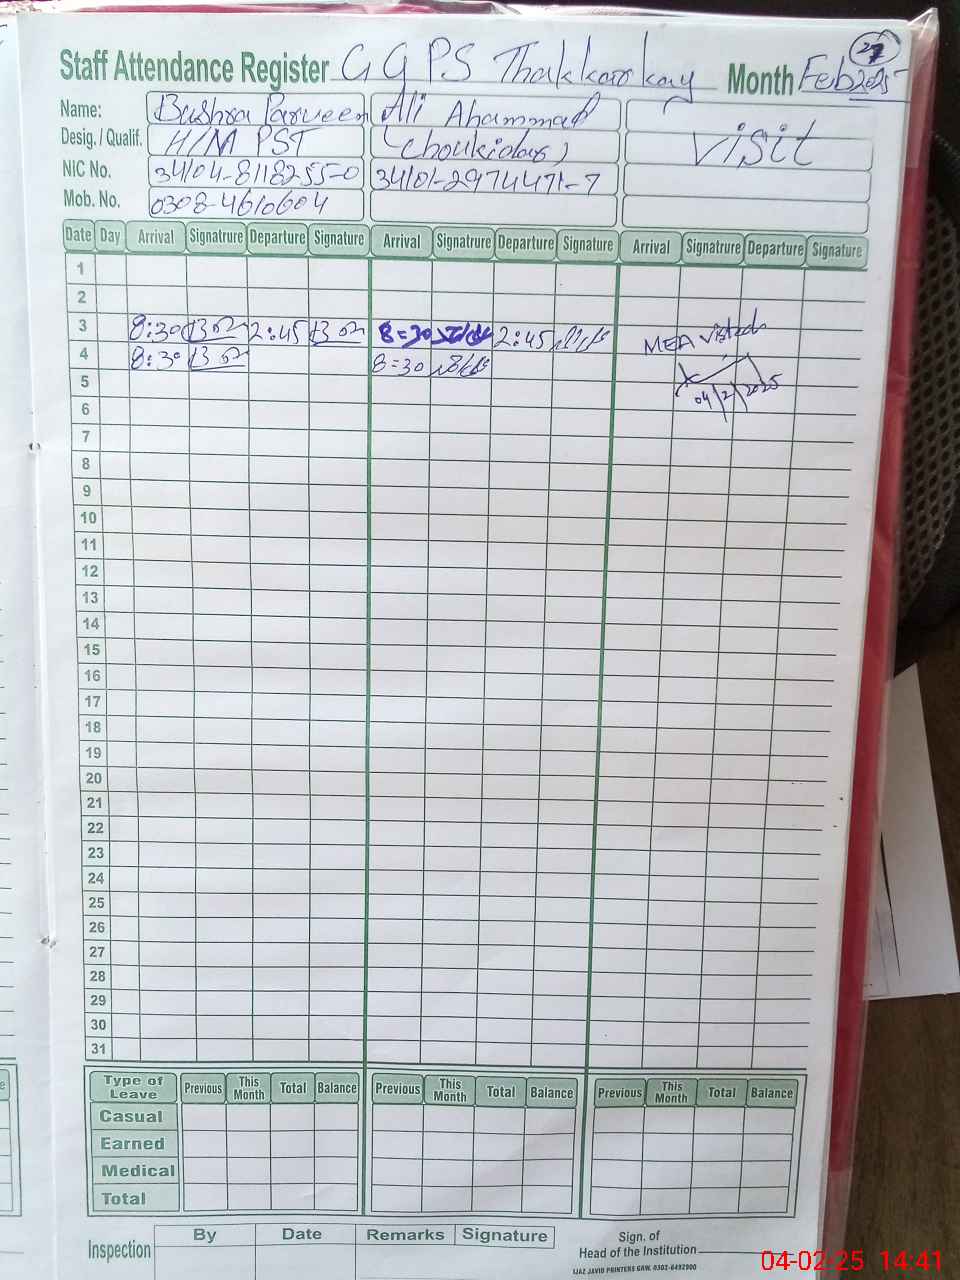 27
Staff Attendance Register GGPS Thakkarkay Month Feb 2025
Name: Bushra Parveen Ali Ahammad
Desig. / Qualif. H/M PST (Choukidar) visit
NIC No. 34104-8118255-0 34101-2974471-7
Mob. No. 0308-4610604
Date Day Arrival Signatrure Departure Signature Arrival Signatrure Departure Signature Arrival Signatrure Departure Signature
1
2
3 8:30 2:45 8=30 2:45 MEA visited
4 8:30 8=30
5 04/2/2025
6
7
8
9
10
11
12
13
14
15
16
17
18
19
20
21
22
23
24
25
26
27
28
29
30
31
Type of Leave Previous This Month Total Balance Previous This Month Total Balance Previous This Month Total Balance
Casual
Earned
Medical
Total
Inspection By Date Remarks Signature Sign. of
Head of the Institution
IJAZ JAVID PRINTERS GRW. 0302-6492900
04-02-25 14:41